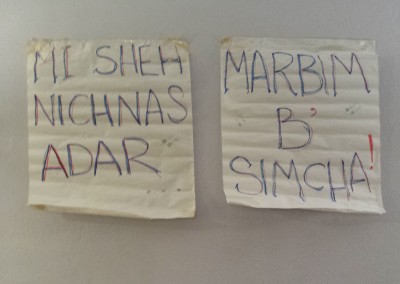 MI SHEH
NICHNAS
ADAR
MARBIM
B'
SIMCHA!